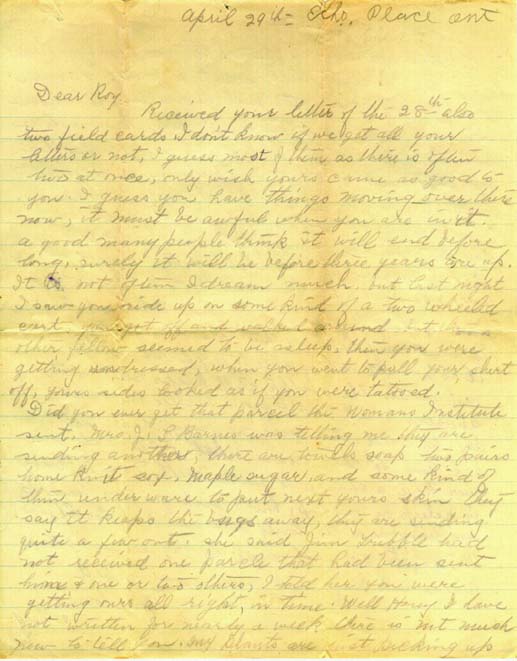 April 29th = Echo, Place Ont
Dear Roy
Received your letter of the 28th also
two field cards I don't know if we get all your
letters or not, I guess most of them as there is often
two at once, only wish yours came as good to
you I guess you have things moving over there
now, it must be awful when you are in it.
a good many people think it will end before
long, surely it will be before three years are up.
It is not often I dream much, but last night
I saw you ride up on some kind of a two wheeled
cart, you got off and walked around but the
other fellow seemed to be asleep, then you were
getting undressed, when you went to pull your shirt
off, yours sides looked as if you were tatooed.
Did you ever get that parcel the Womans Institute
sent. Mrs. J. S. Barnes was telling me they are
sending another, there are towels soap two pairs
home knit sox, Maple sugar, and some kind of
thin underware to put next yours skin they
say it keaps the bugs away, they are sending
quite a few out. she said Jim had
not received one parcle that had been sent
him & one or two others, I told her you were
getting ours all right, in time. Well I have
not written for nearly a week there is not much
new to tell you. My plants are just picking up